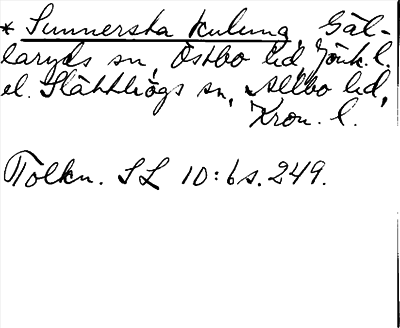 * Sunnerska kulung, Gäl-
laryds sn, Östbo hd, Jönk. l.
el. Slätthögs sn, Allbo hd,
Kron. l.
Tolkn. SL 10:6 s. 249.